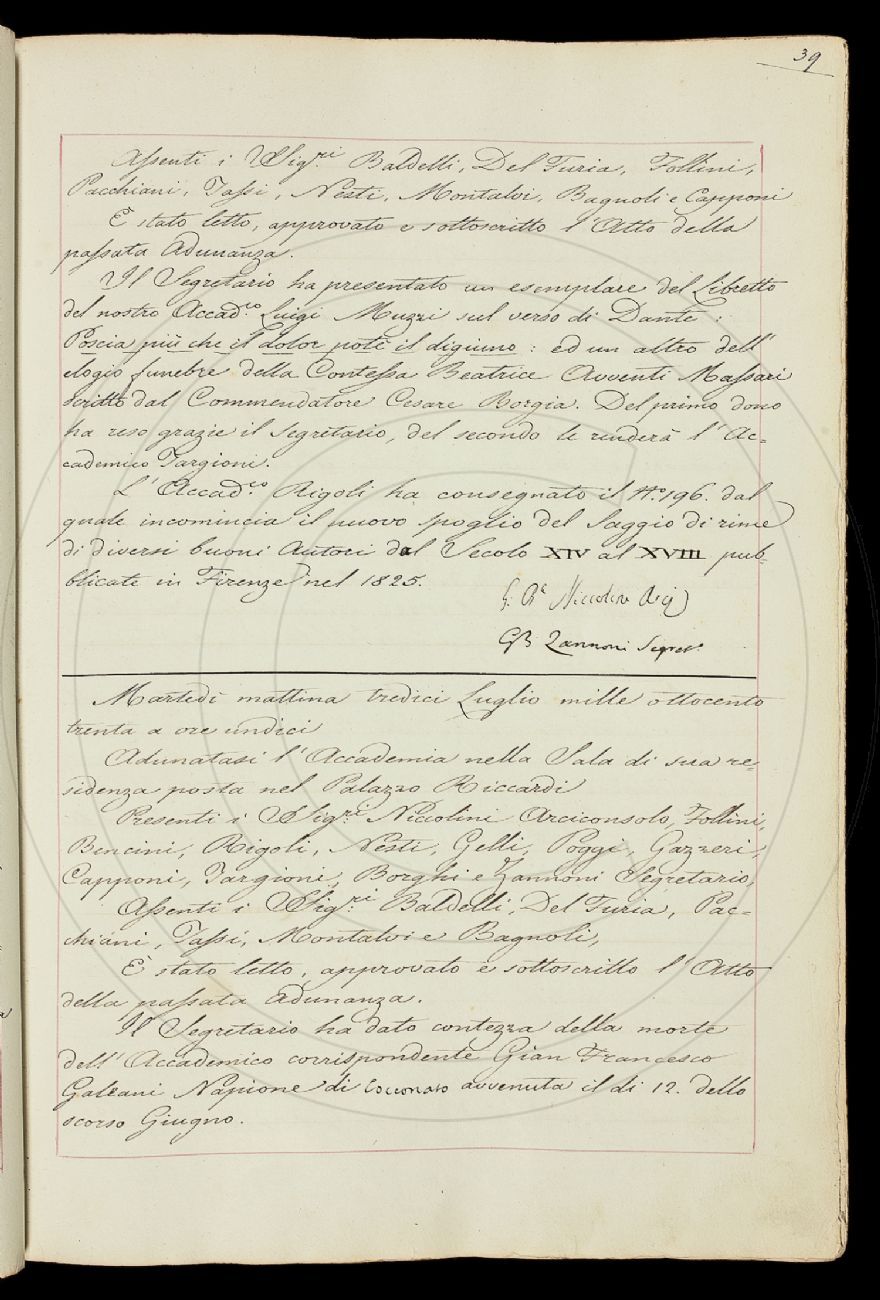 39
Assenti i Sig.ri Baldelli, Del Furia, Follini,
Pacchiani, Tassi, Nesti, Montalvi, Bagnoli e Capponi
È stato letto, approvato e sottoscritto l'Atto della
passata Adunanza.
Il Segretario ha presentato un esemplare del Libretto
del nostro Accad.co Luigi Muzzi sul verso di Dante:
Poscia più che il dolor potè il digiuno: ed un altro dell'
elogio funebre della Contessa Beatrice Avventi Massari
scritto dal Commendatore Cesare Borgia. Del primo dono
ha reso grazie il Segretario, del secondo le renderà l'Ac=
cademico Targioni.
L'Accad.co Rigoli ha consegnato il N.o 196. dal
quale incomincia il nuovo spoglio del Saggio di rime
di diversi buoni Autori dal Secolo XIV al XVIII pub=
blicate in Firenze nel 1825.
G. B.e Niccolini Arcj
GB Zannoni Segret.
Martedì mattina tredici Luglio mille ottocento
trenta a ore undici
Adunatasi l'Accademia nella Sala di sua re=
sidenza posta nel Palazzo Riccardi
Presenti i Sig.ri Niccolini Arciconsolo, Follini,
Bencini, Rigoli, Nesti, Gelli, Poggi, Gazzeri,
Capponi, Targioni, Borghi e Zannoni Segretario,
Assenti i Sig.ri Baldelli, Del Furia, Pac=
chiani, Tassi, Montalvi e Bagnoli,
È stato letto, approvato e sottoscritto l'Atto
della passata Adunanza.
Il Segretario ha dato contezza della morte
dell'Accademico corrispondente Gian Francesco
Galeani Napione di Cocconato avvenuta il di 12. dello
scorso Giugno.